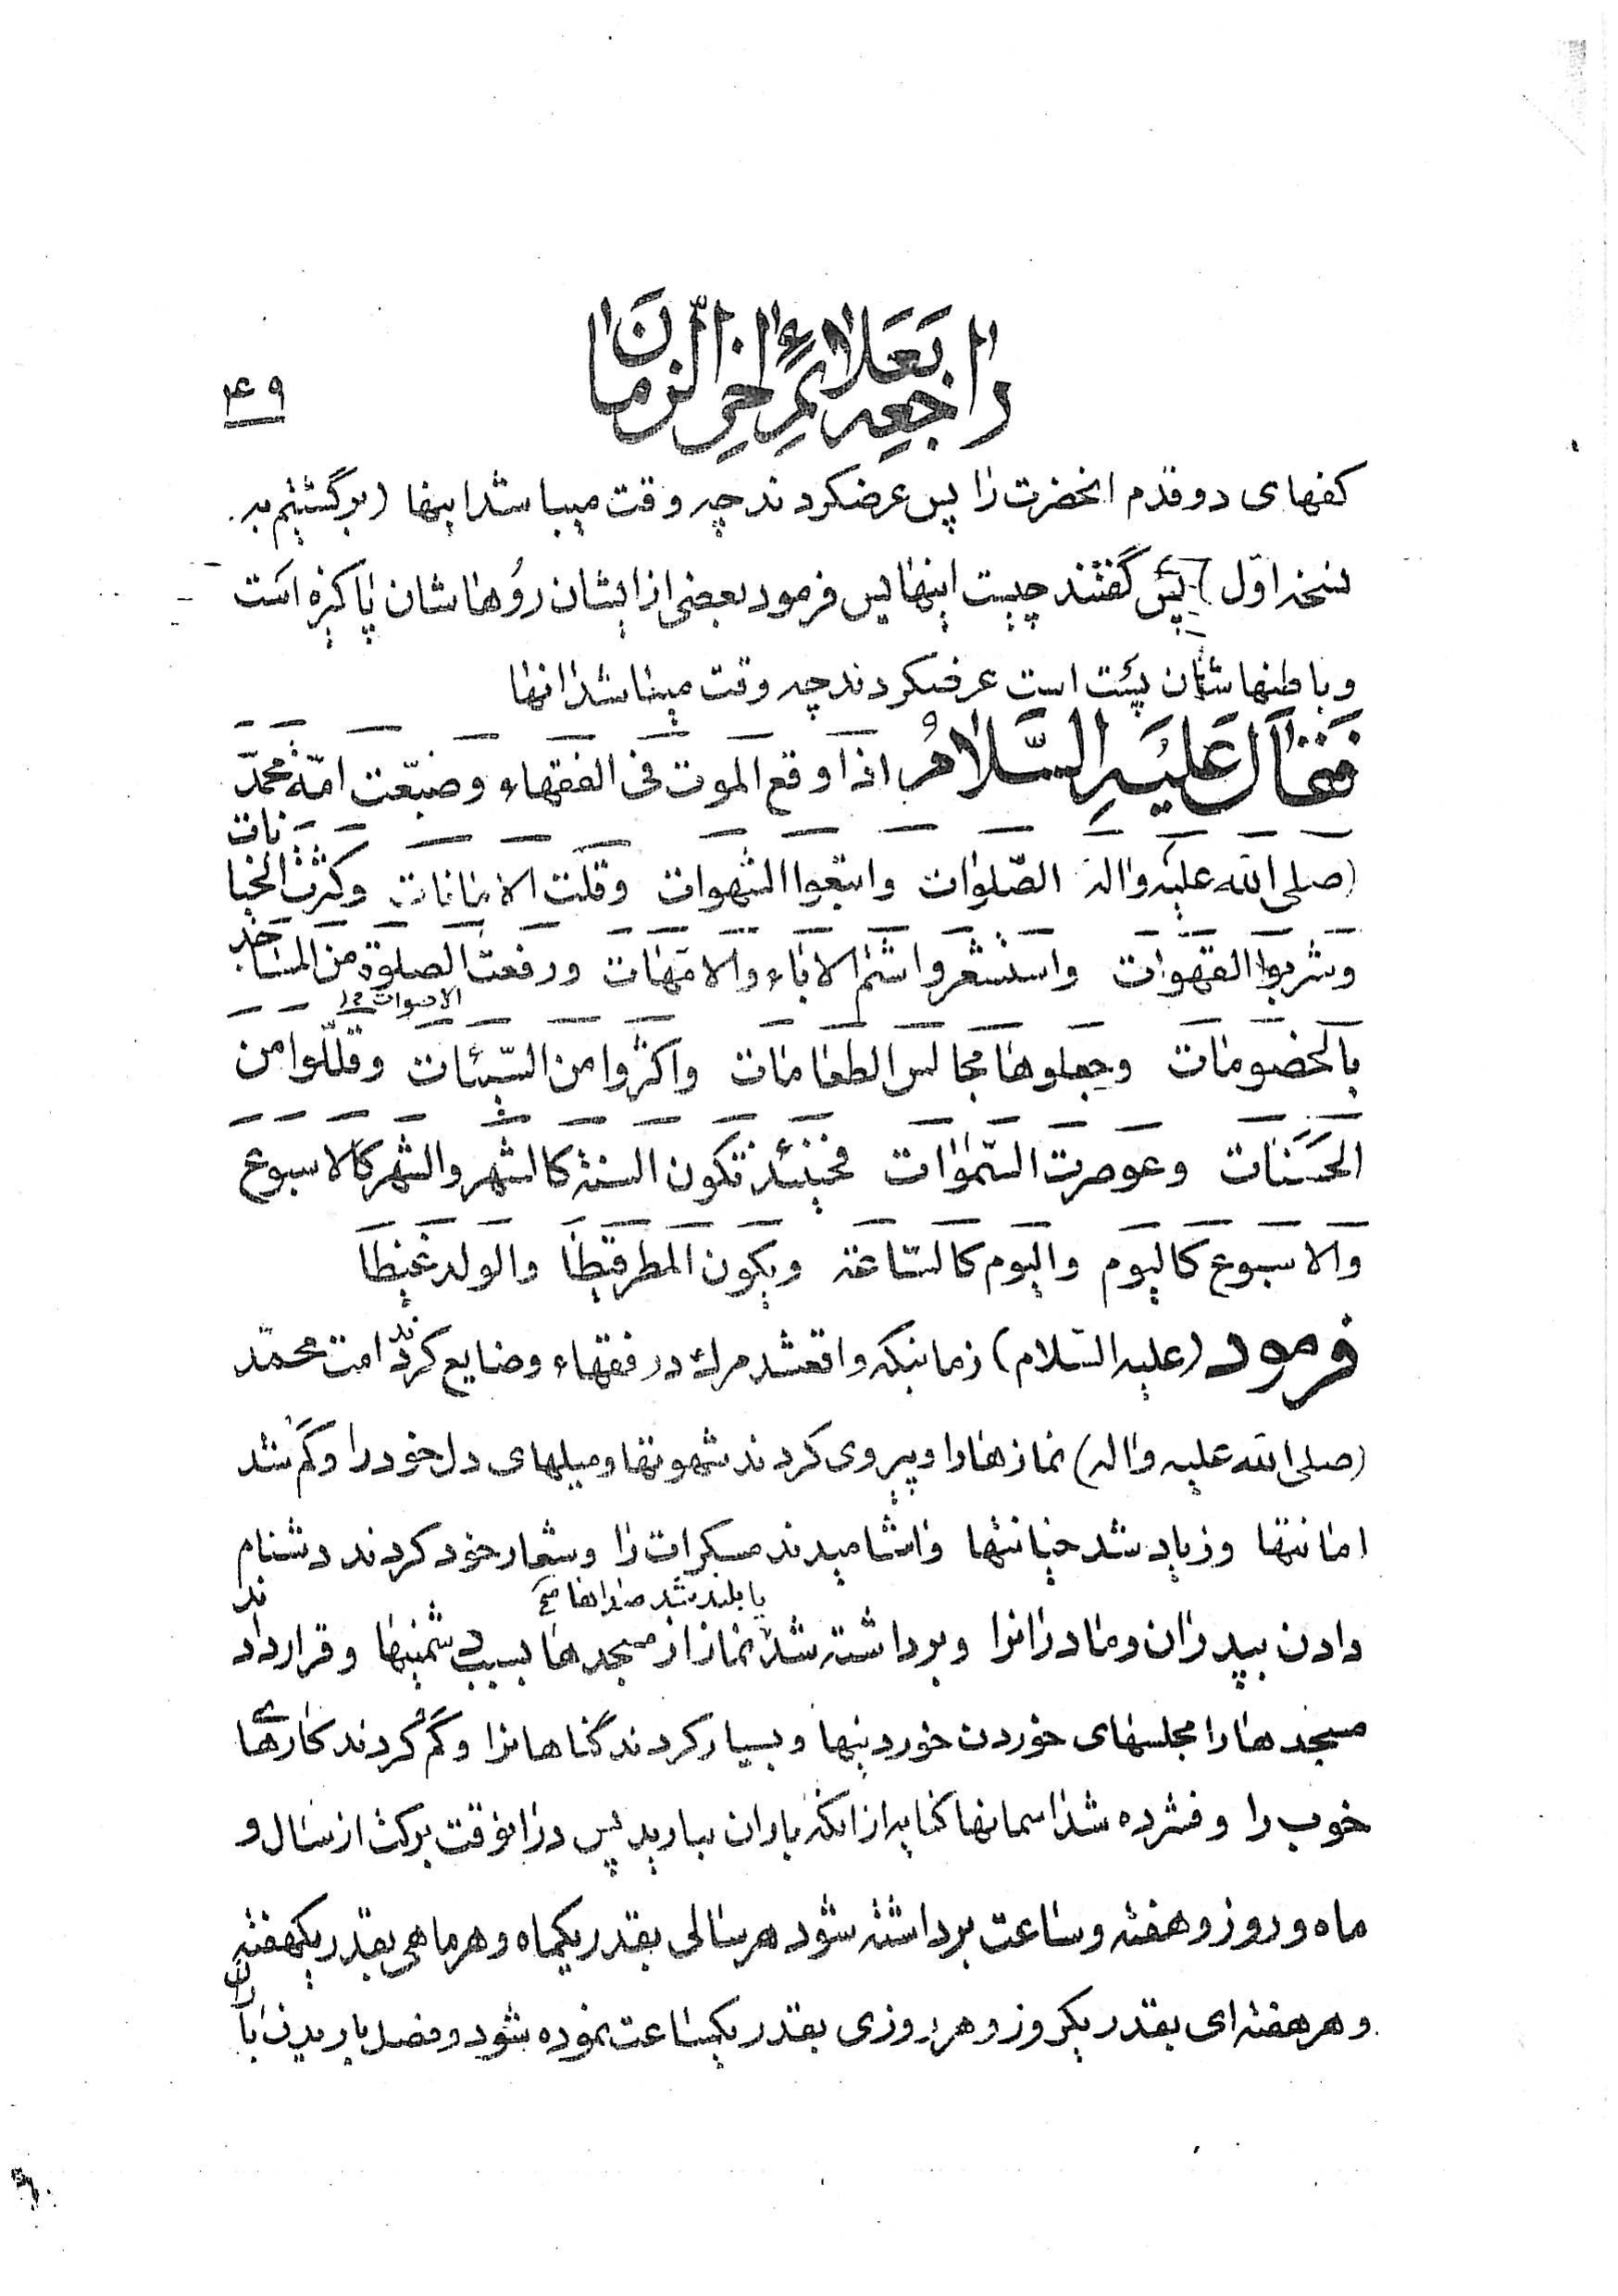 راجعه بعلائم اخر الزمان
۴۹
کفهای دو قدم انحضرت را پس عرضکردند چه وقت میباشد اینها (برگشتیم به
نسخه اول) پس گفتند چیست اینها پس فرمود بعضی از ایشان روُهاشان پاکیزه است
و باطنهاشان پست است عرضکردند چه وقت میباشد انها
فَقَالَ عَلَیهِ السَّلامُ اذا وقع الموت فی الفقهاء و ضیّعت امّة محمّد
(صلی الله علیه واله الصّلوات واتبعوا الشهوات وقلّت الامانات وکثرت الخیانات
وشربوا القهوات واستشعروا شتم الاباء والامّهات ورفعت الصلوة من المساجد
الاصوات
بالخصومات وجعلوها مجالس الطعامات واکثروا من السّیئات وقلّلوا من
الحَسَنات وعوصرت السّموات فحینئذ تکون السنة کالشهر والشهر کالاسبوع
والاسبوع کالیوم والیوم کالسّاعة ویکون المطر قیظا والولد غیظا
فرمود (علیه السّلام) زمانیکه واقعشد مرگ در فقهاء وضایع کردند امت محمّد
(صلی الله علیه واله) نمازها را و پیروی کردند شهوتها ومیلهای دل خود را و کم شد
امانتها وزیاد شد خیانتها واشامیدند مسکرات را وشعار خود کردند دشنام
یا بلند شد صداها
دادن بپدران ومادرانرا وبرداشته شد نماز از مسجدها بسبب دشمنیها وقرار دادند
مسجدها را مجلسهای خوردن خوردنیها وبسیار کردند گناهانرا وکم کردند کارهای
خوب را وفشرده شد اسمانها کنایه از انکه باران نبارید پس در انوقت برکت از سال و
ماه و روز و هفته وساعت برداشته شود هر سالی بقدر یکماه و هر ماهی بقدر یکهفته
و هر هفته ای بقدر یکروز و هر روزی بقدر یکساعت نموده شود و فصل باریدن باران